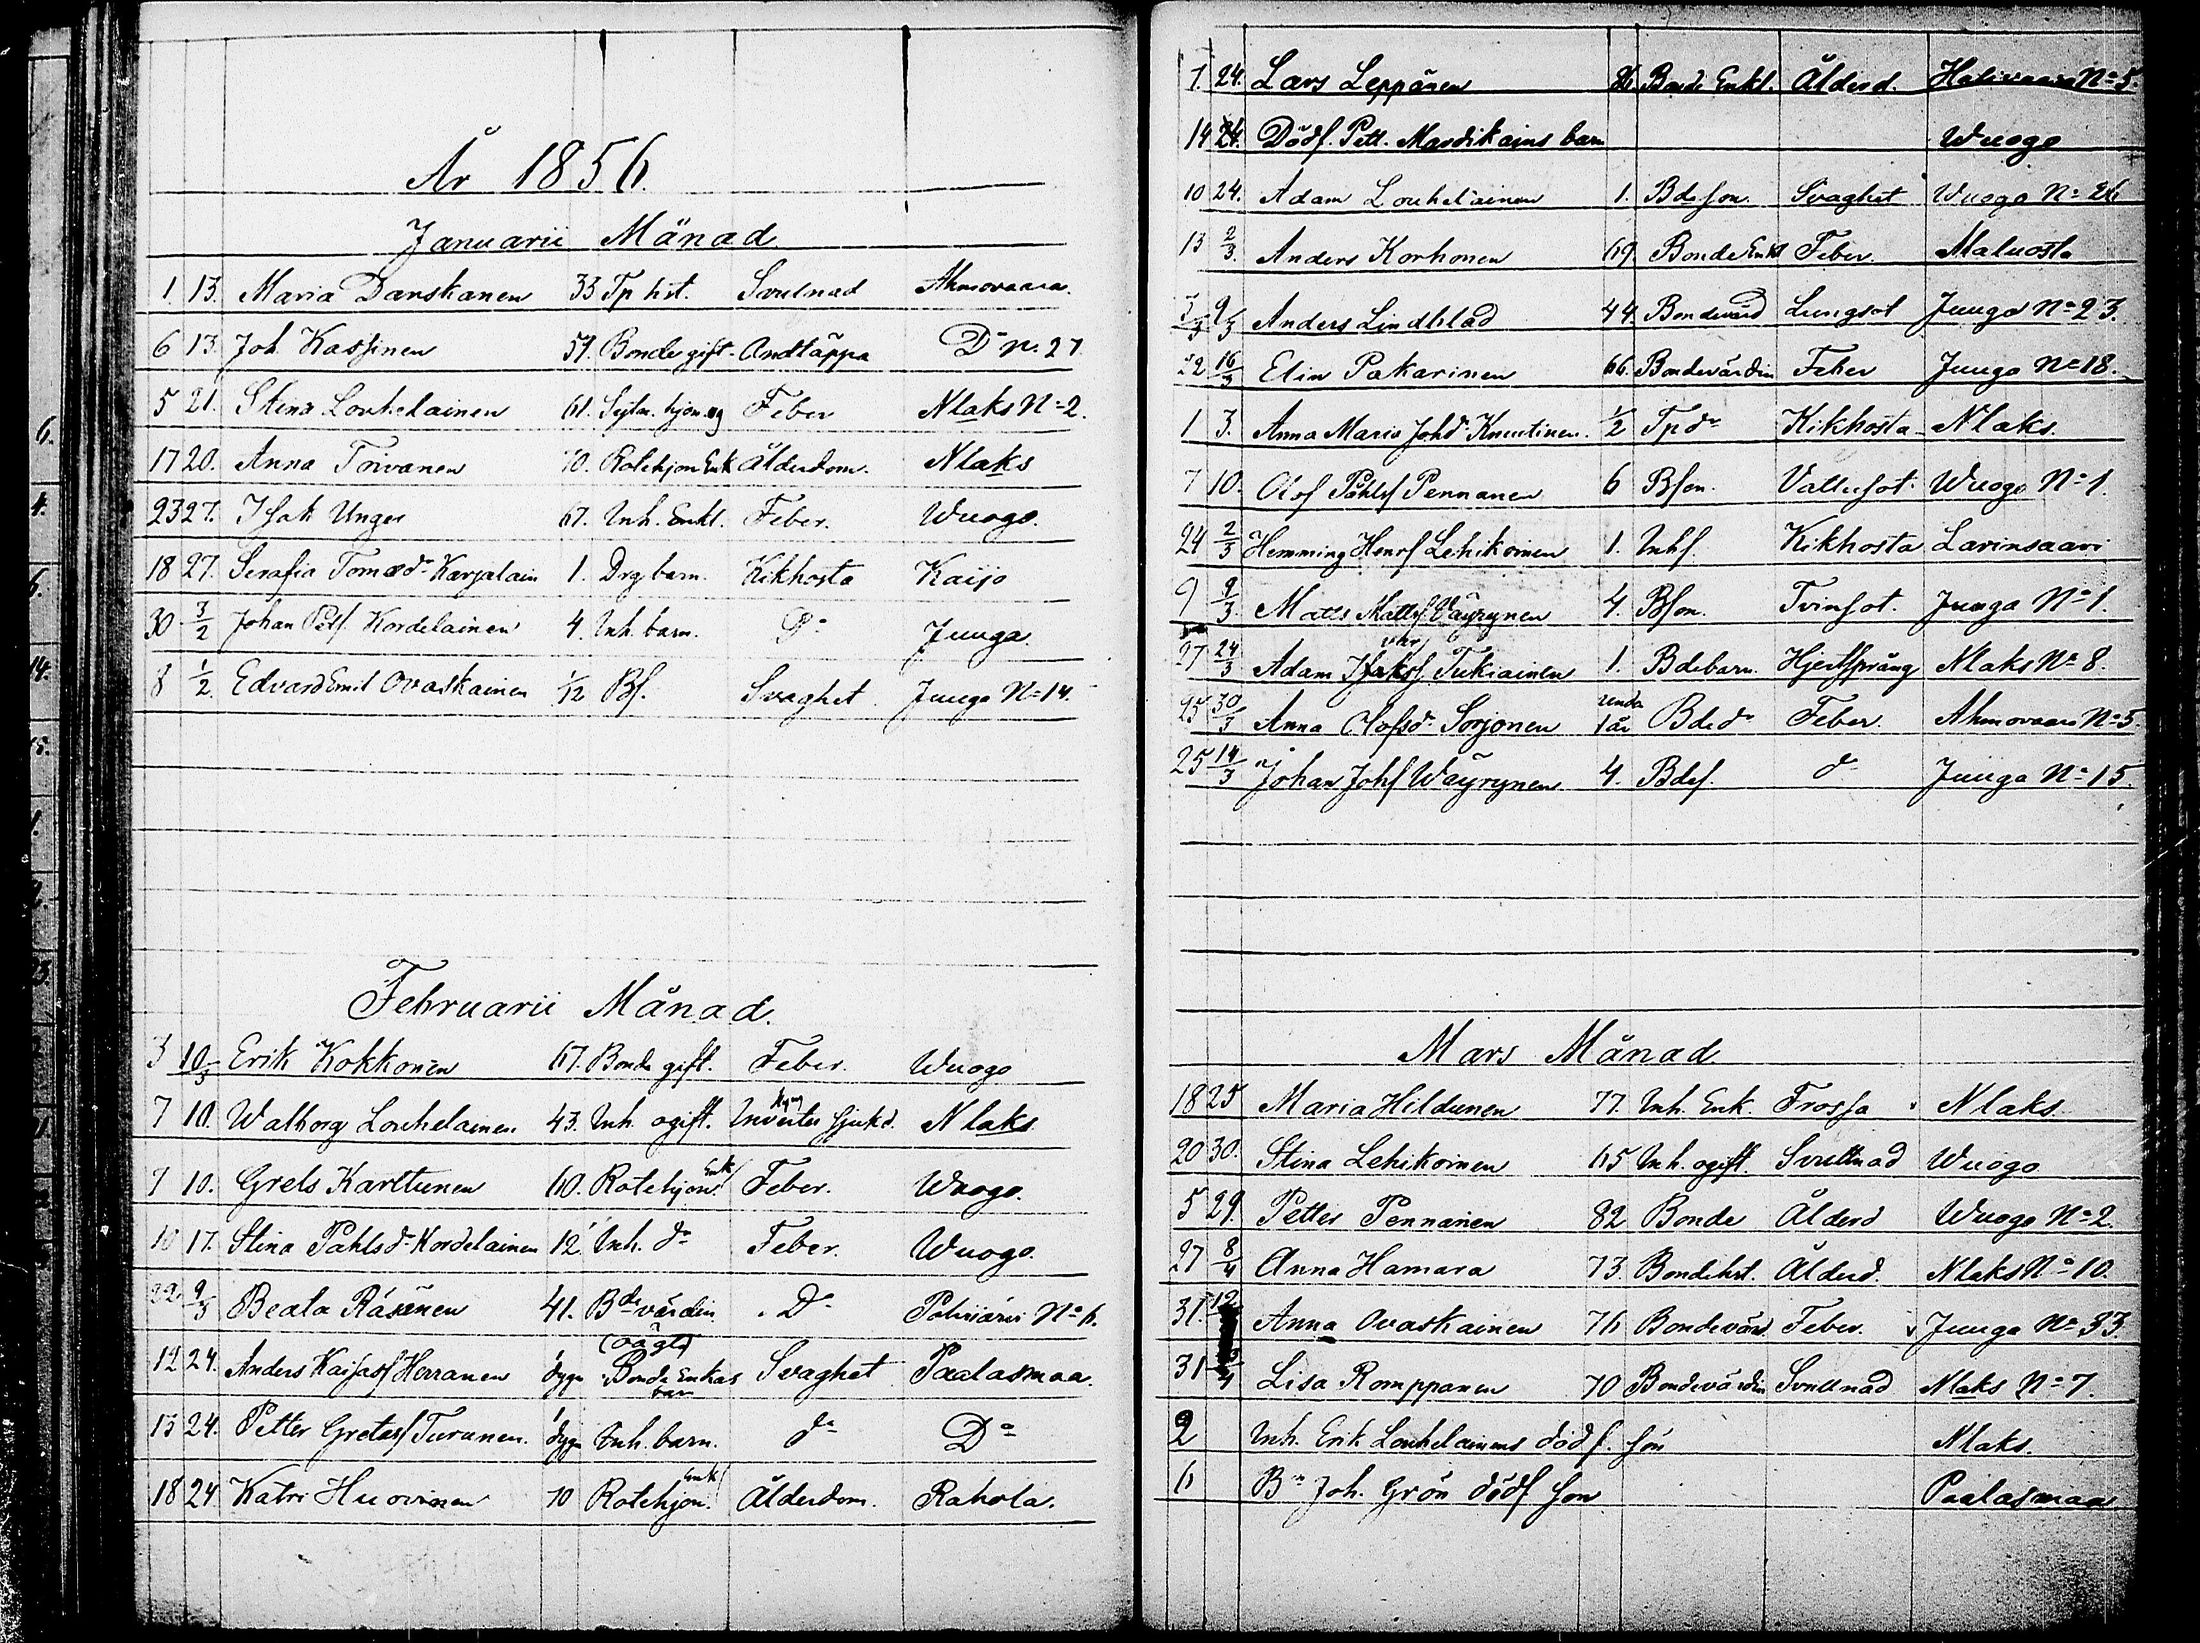 År 1856.
Januarii Månad
1. 13. Maria Danskanen 33 Tp hst. Svulnad Ahmovaara.
6 13. Joh. Kassinen 59. Bonde gift. Andtäppa D:o N:o 27.
5 21. Stina Louhelainen 61. hjon Feber Nlaks N:o 2.
17 20. Anna Toivanen 70. Rotehjon Enk Ålderdom. Nlaks
23 27. Isak Unger 67. Inh. Enkl. Feber. Wuogo.
18 27. Serafia Tomasd:r Karjalain 1. Drg barn. Kikhosta Kaijo
30 3/2 Johan Pets. Kordelainen 4. Inh. barn. D:o Juuga.
8 1/2. Edvard Emil Ovaskainen 1/12 Bs. Svaghet Juuga N:o 14.
Februarii Månad.
3 10/3 Erik Kokkonen 67. Bonde gift. Feber. Wuogo
7 10. Walborg Louhelainen 43. Inh. ogift. sjukd. Nlaks
7 10. Grels Karttunen 60. Rotehjon Enk Feber. Wuogo.
10 17. Stina Pahlsd:r Kordelainen 12. Inh. d:r Feber. Wuogo.
22. 9/3 Beata Räsänen 41. B:devärdin. D:o Polvijärvi N:o 6.
12 24. Anders Kaisas Herranen dygn (oägta) Bonde Enkas barn Svaghet Paalasmaa.
13 24. Petter Gretas Turunen. dygn Inh. barn. d:o D:o
18 24 Katri Huovinen 70 Rotehjon. Enk Ålderdom. Rahola.
1. 24. Lars Leppänen 86. Bonde Enkl. Ålderd. Halivaara N:o 5.
14 24. Dödf. Pett. Mardikains barn Wuogo
10 24. Adam Louhelainen 1. Bdeson. Svaghet Wuogo N:o 26
13 2/3. Anders Korhonen 69. Bonde Enkl Feber. Maluosta
3/3 9/3 Anders Lindblad 44. Bondevärd Lungsot Juuga N:o 23.
22 16/3 Elin Pakarinen 66. Bondevärdin Feber Juuga N:o 18.
1 3. Anna Maria Johd:r Knuutinen. 1/2 Tp d:r Kikhosta Nlaks.
7 10. Olof Påhls Pennanen 6 Bson. Vattusot. Wuogo N:o 1.
24 2/3 Hemming Henrs Lehikoinen 1. Inhs. Kikhosta Larinsaari
9 9/3. Matts Matts Väyrynen 4. Bson. Tvinsot. Juuga N:o 1.
27 24/3 Adam Isaks Tukiainen 1. Bdebarn. Hjertsprång Nlaks N:o 8.
25 30/3 Anna Olofsd:r Sorjonen unda 1 år Bde d:r Feber. Ahmovaara N:o 5.
25 14/3 Johan Johs Wäyrynen 4. Bdes. d:o Juuga N:o 15.
Mars Månad
18 25 Maria Hildunen 77. Inh. Enk. Frossa Nlaks.
20 30. Stina Lehikoinen 65 Inh. ogift. Svullnad Wuogo
5 29. Petter Pennanen 82 Bonde Ålderd Wuogo N:o 2.
27 8/4 Anna Hamara 73. Bondehst. Ålderd. Nlaks N:o 10.
31. Anna Ovaskainen 76 Bondevärd. Feber. Juuga N:o 33.
31 Lisa Romppanen 70 Bondevärdin Svullnad Nlaks N:o 7.
2 Inh. Erik Louhelainens dödf. son Nlaks.
6 B:n Joh. Grön dödf son Paalasmaa